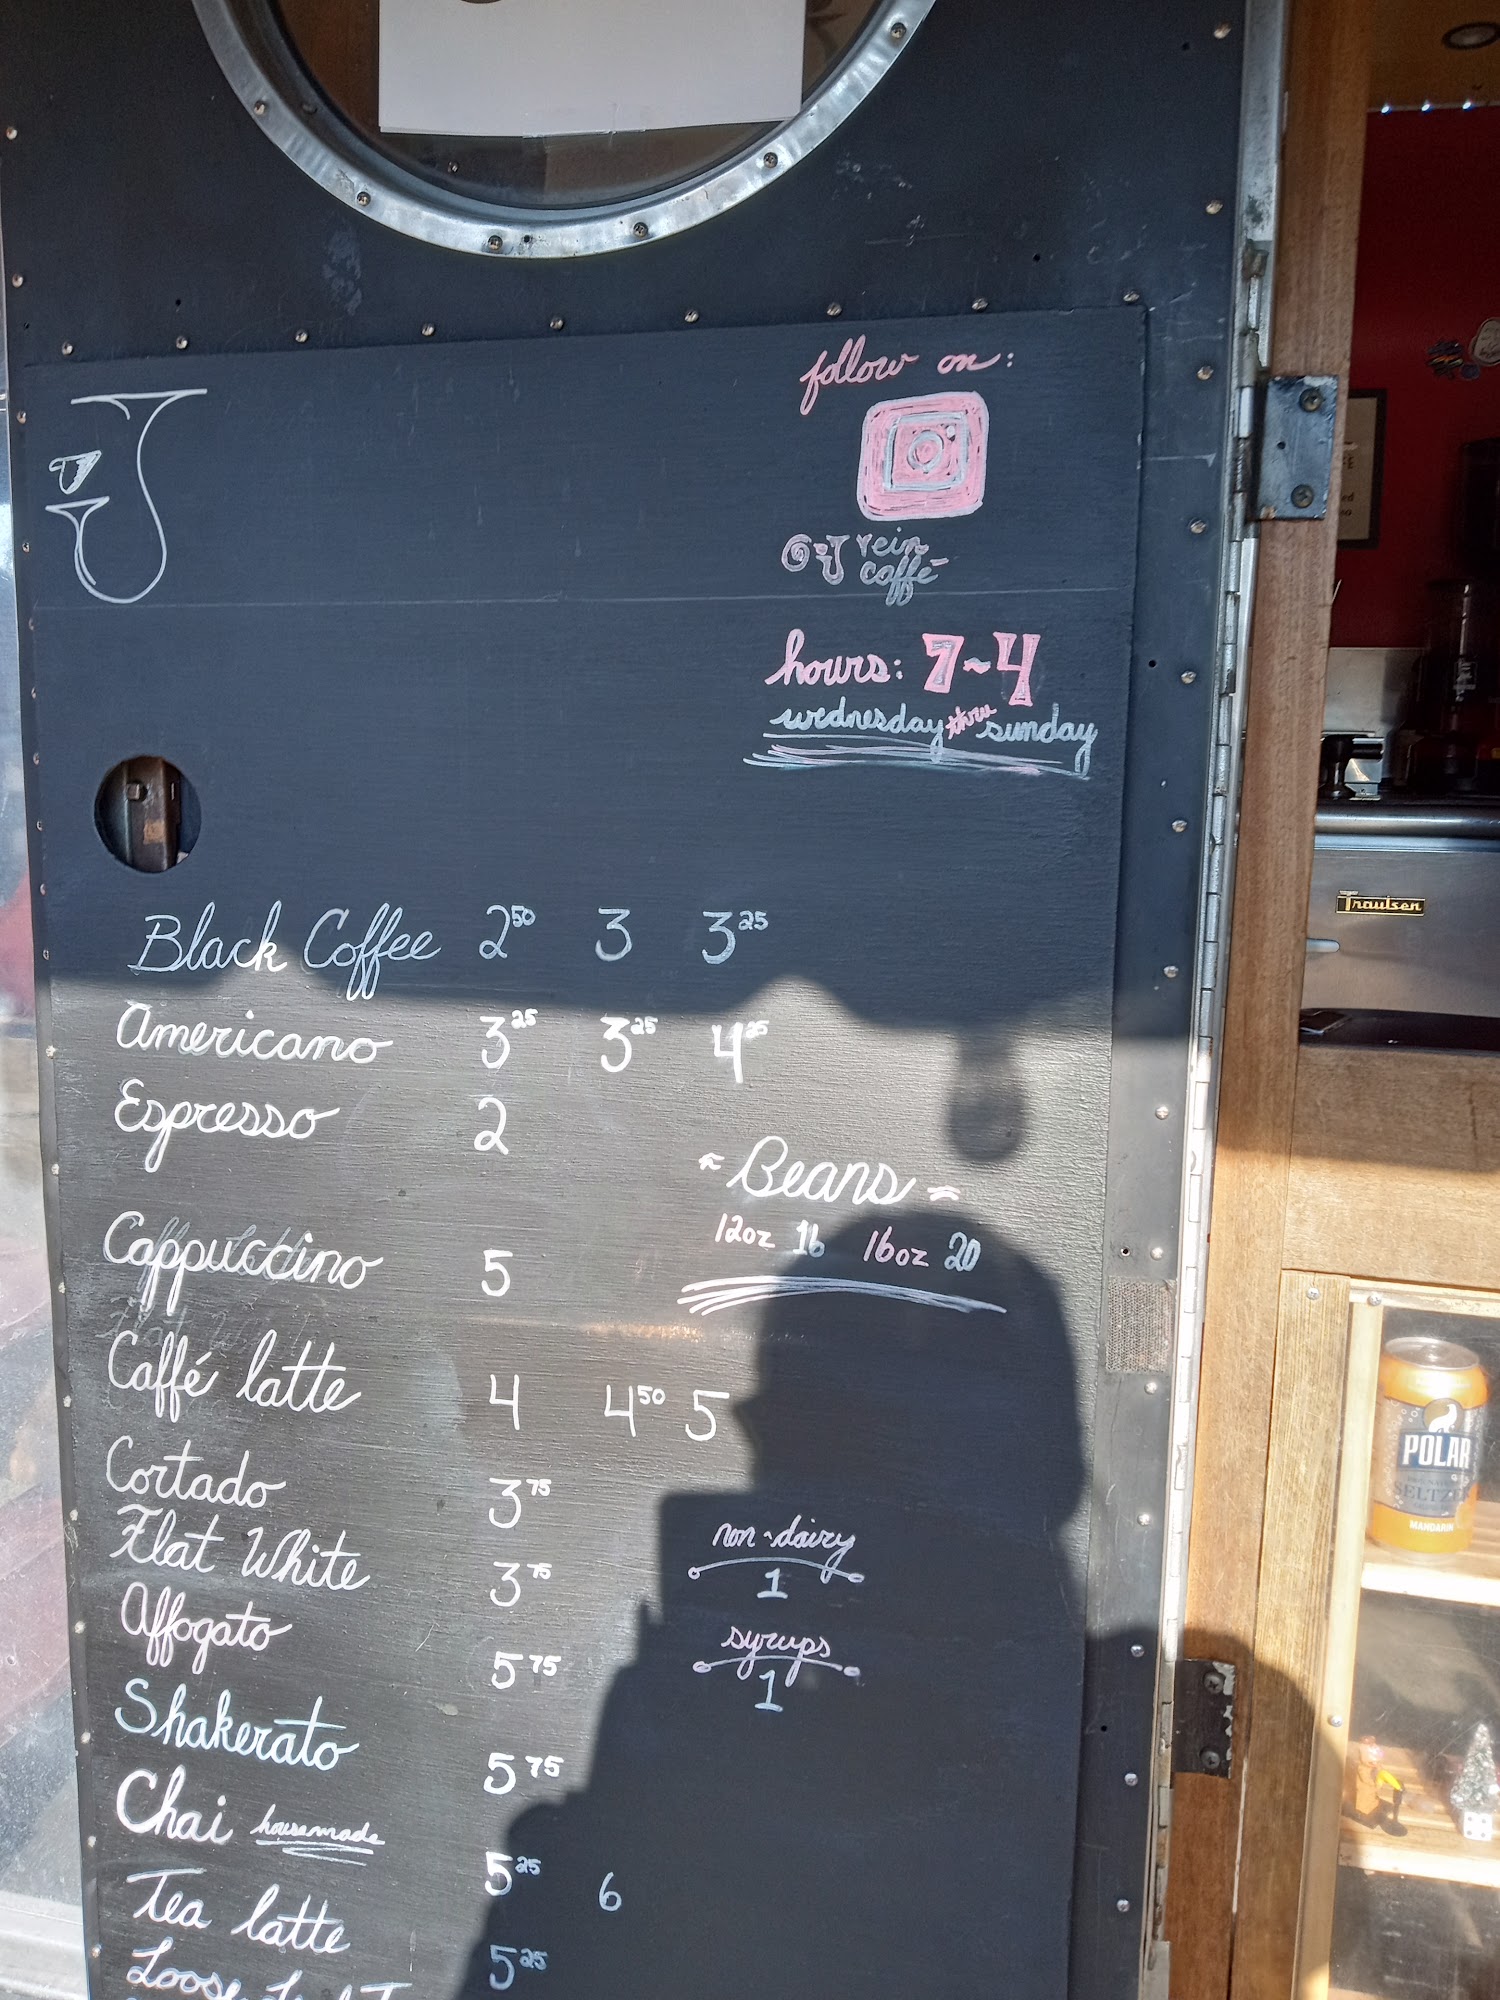 follow on:
vein
caffé
hours: 7~4
wednesday thru sunday
Black Coffee 2 50 3 3 25
Americano 3 25 3 25 4 25
Espresso 2
~Beans~
12oz 16 16oz 20
Cappuccino 5
Caffé latte 4 4 50 5
Cortado 3 75
Flat White 3 75
Affogato 5 75
Shakerato 5 75
Chai housemade 5 25 6
Tea latte 5 25
Loose
non-dairy
1
syrups
1
Traulsen
POLAR
SELTZER
MANDARIN